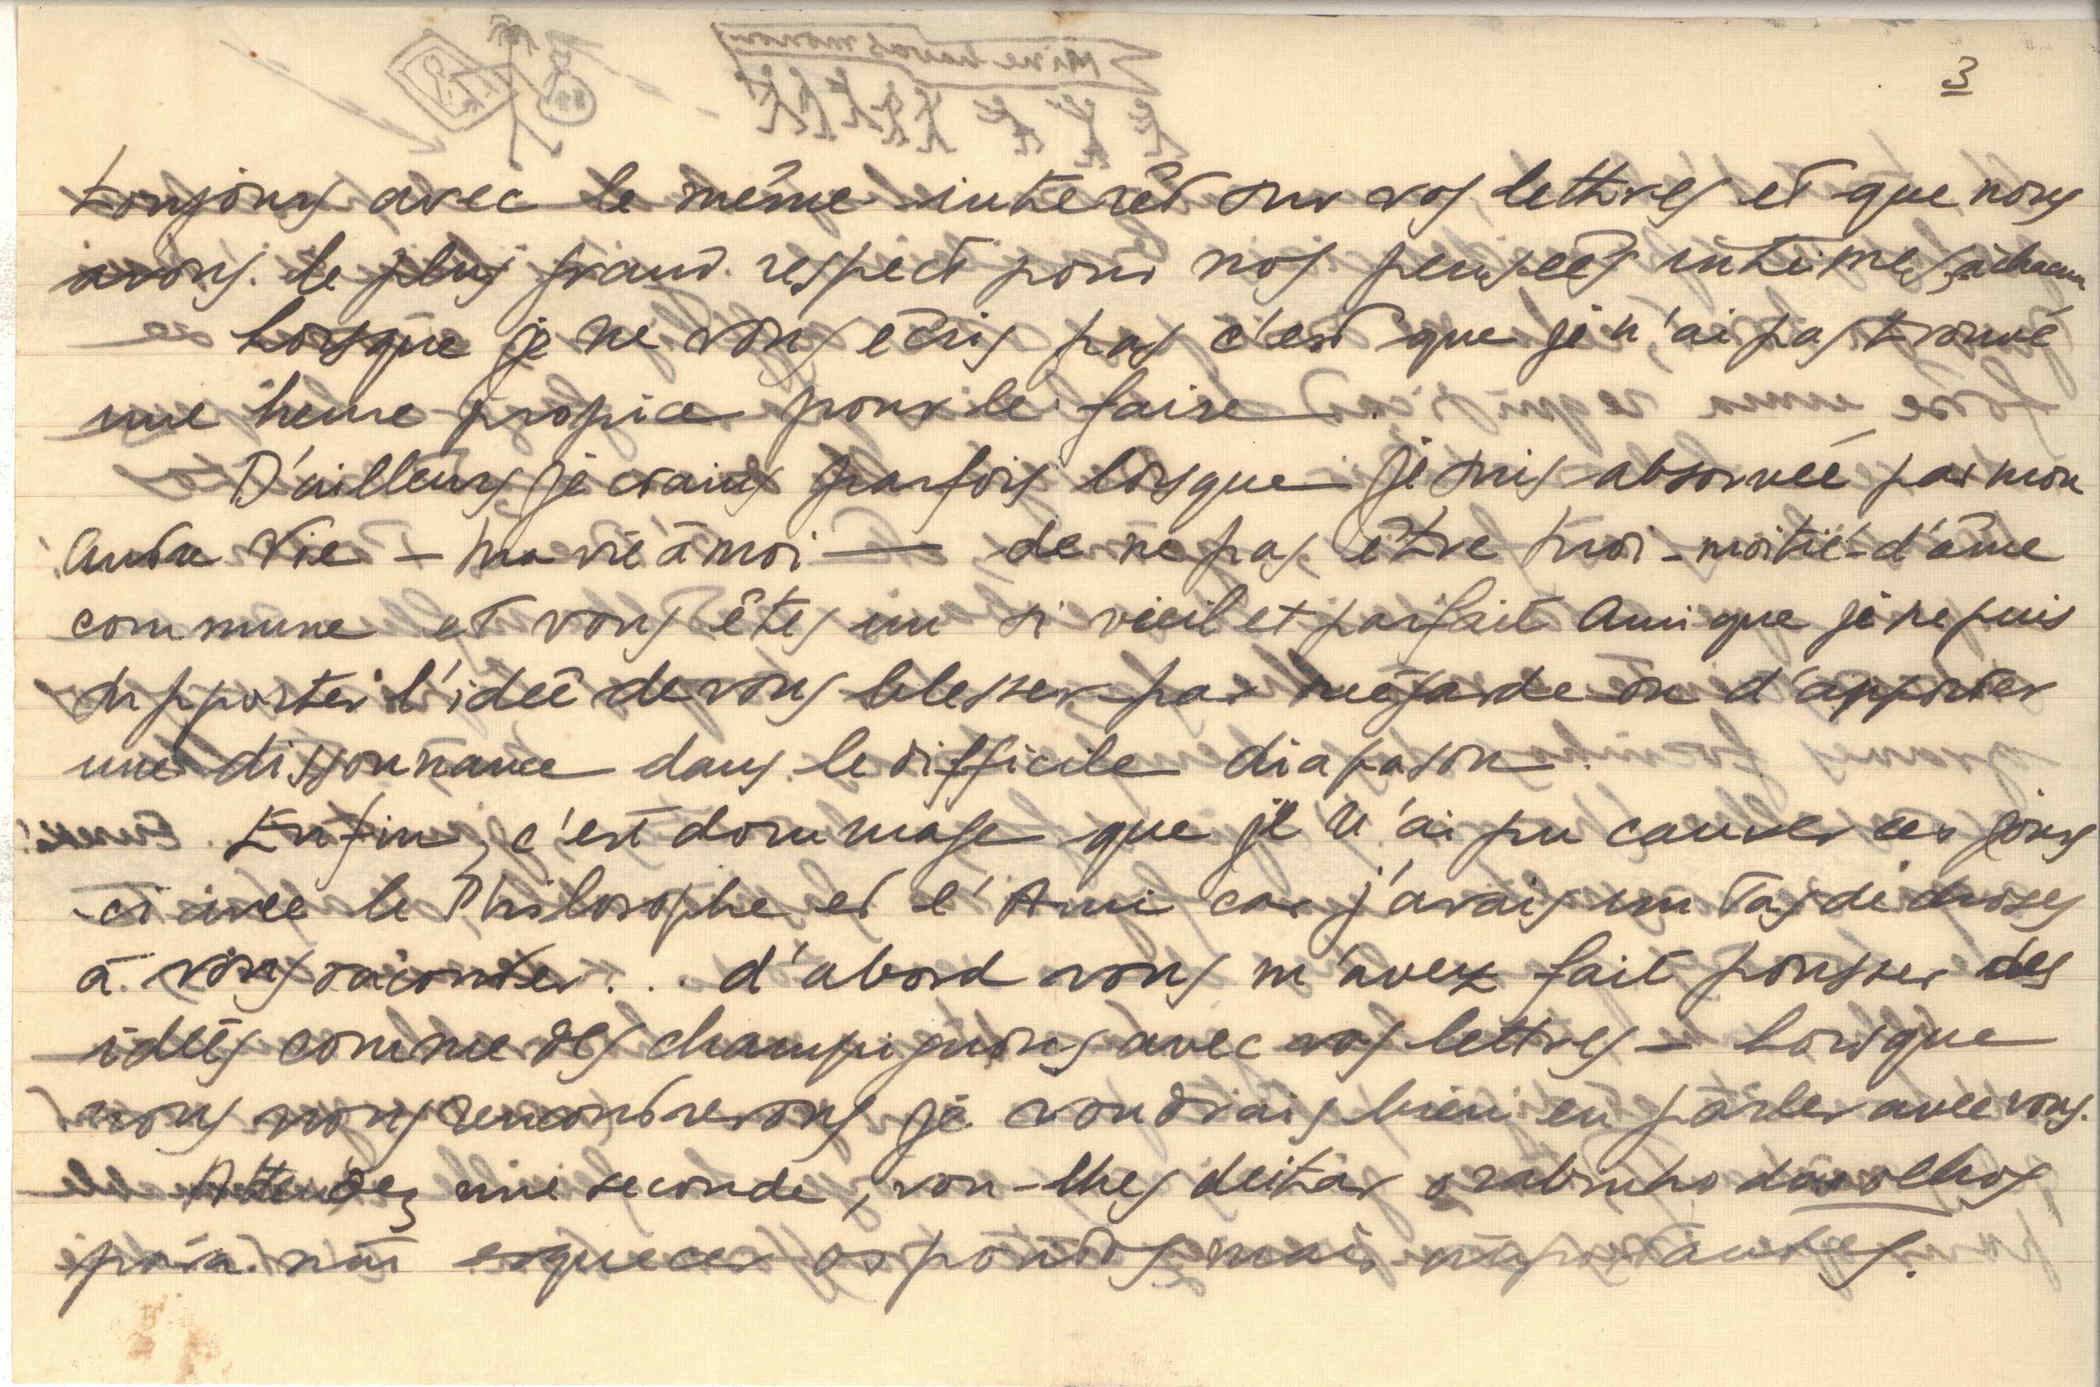 3
toujours avec le même intérêt sur vos lettres et que nous
avons le plus grand respect pour nos pensées intimes, à chacun
Lorsque je ne vous écris pas c'est que je n'ai pas trouvé
une heure propice pour le faire.
D'ailleurs je crains parfois lorsque je suis absorvée par mon
Autre Vie – ma vie à moi — de ne pas être moi-moitié-d'âme
commune et vous êtes un si vieil et parfait Ami que je ne puis
supporter l'idée de vous blesser par mégarde ou d'apporter
une dissonnance dans le difficile diapason.
Enfin, c'est dommage que je n'ai pu causer ces jours
ci avec le Philosophe et l'Ami car j'avais un tas de choses
à vous raconter... d'abord vous m'avez fait pousser des
idées comme des champignons avec vos lettres – Lorsque
nous nous rencontrerons je voudrais bien en parler avec vous.
Attendez une seconde, vou-lhes deitar o rabinho dos olhos
para não esquecer os pontos mais importantes.